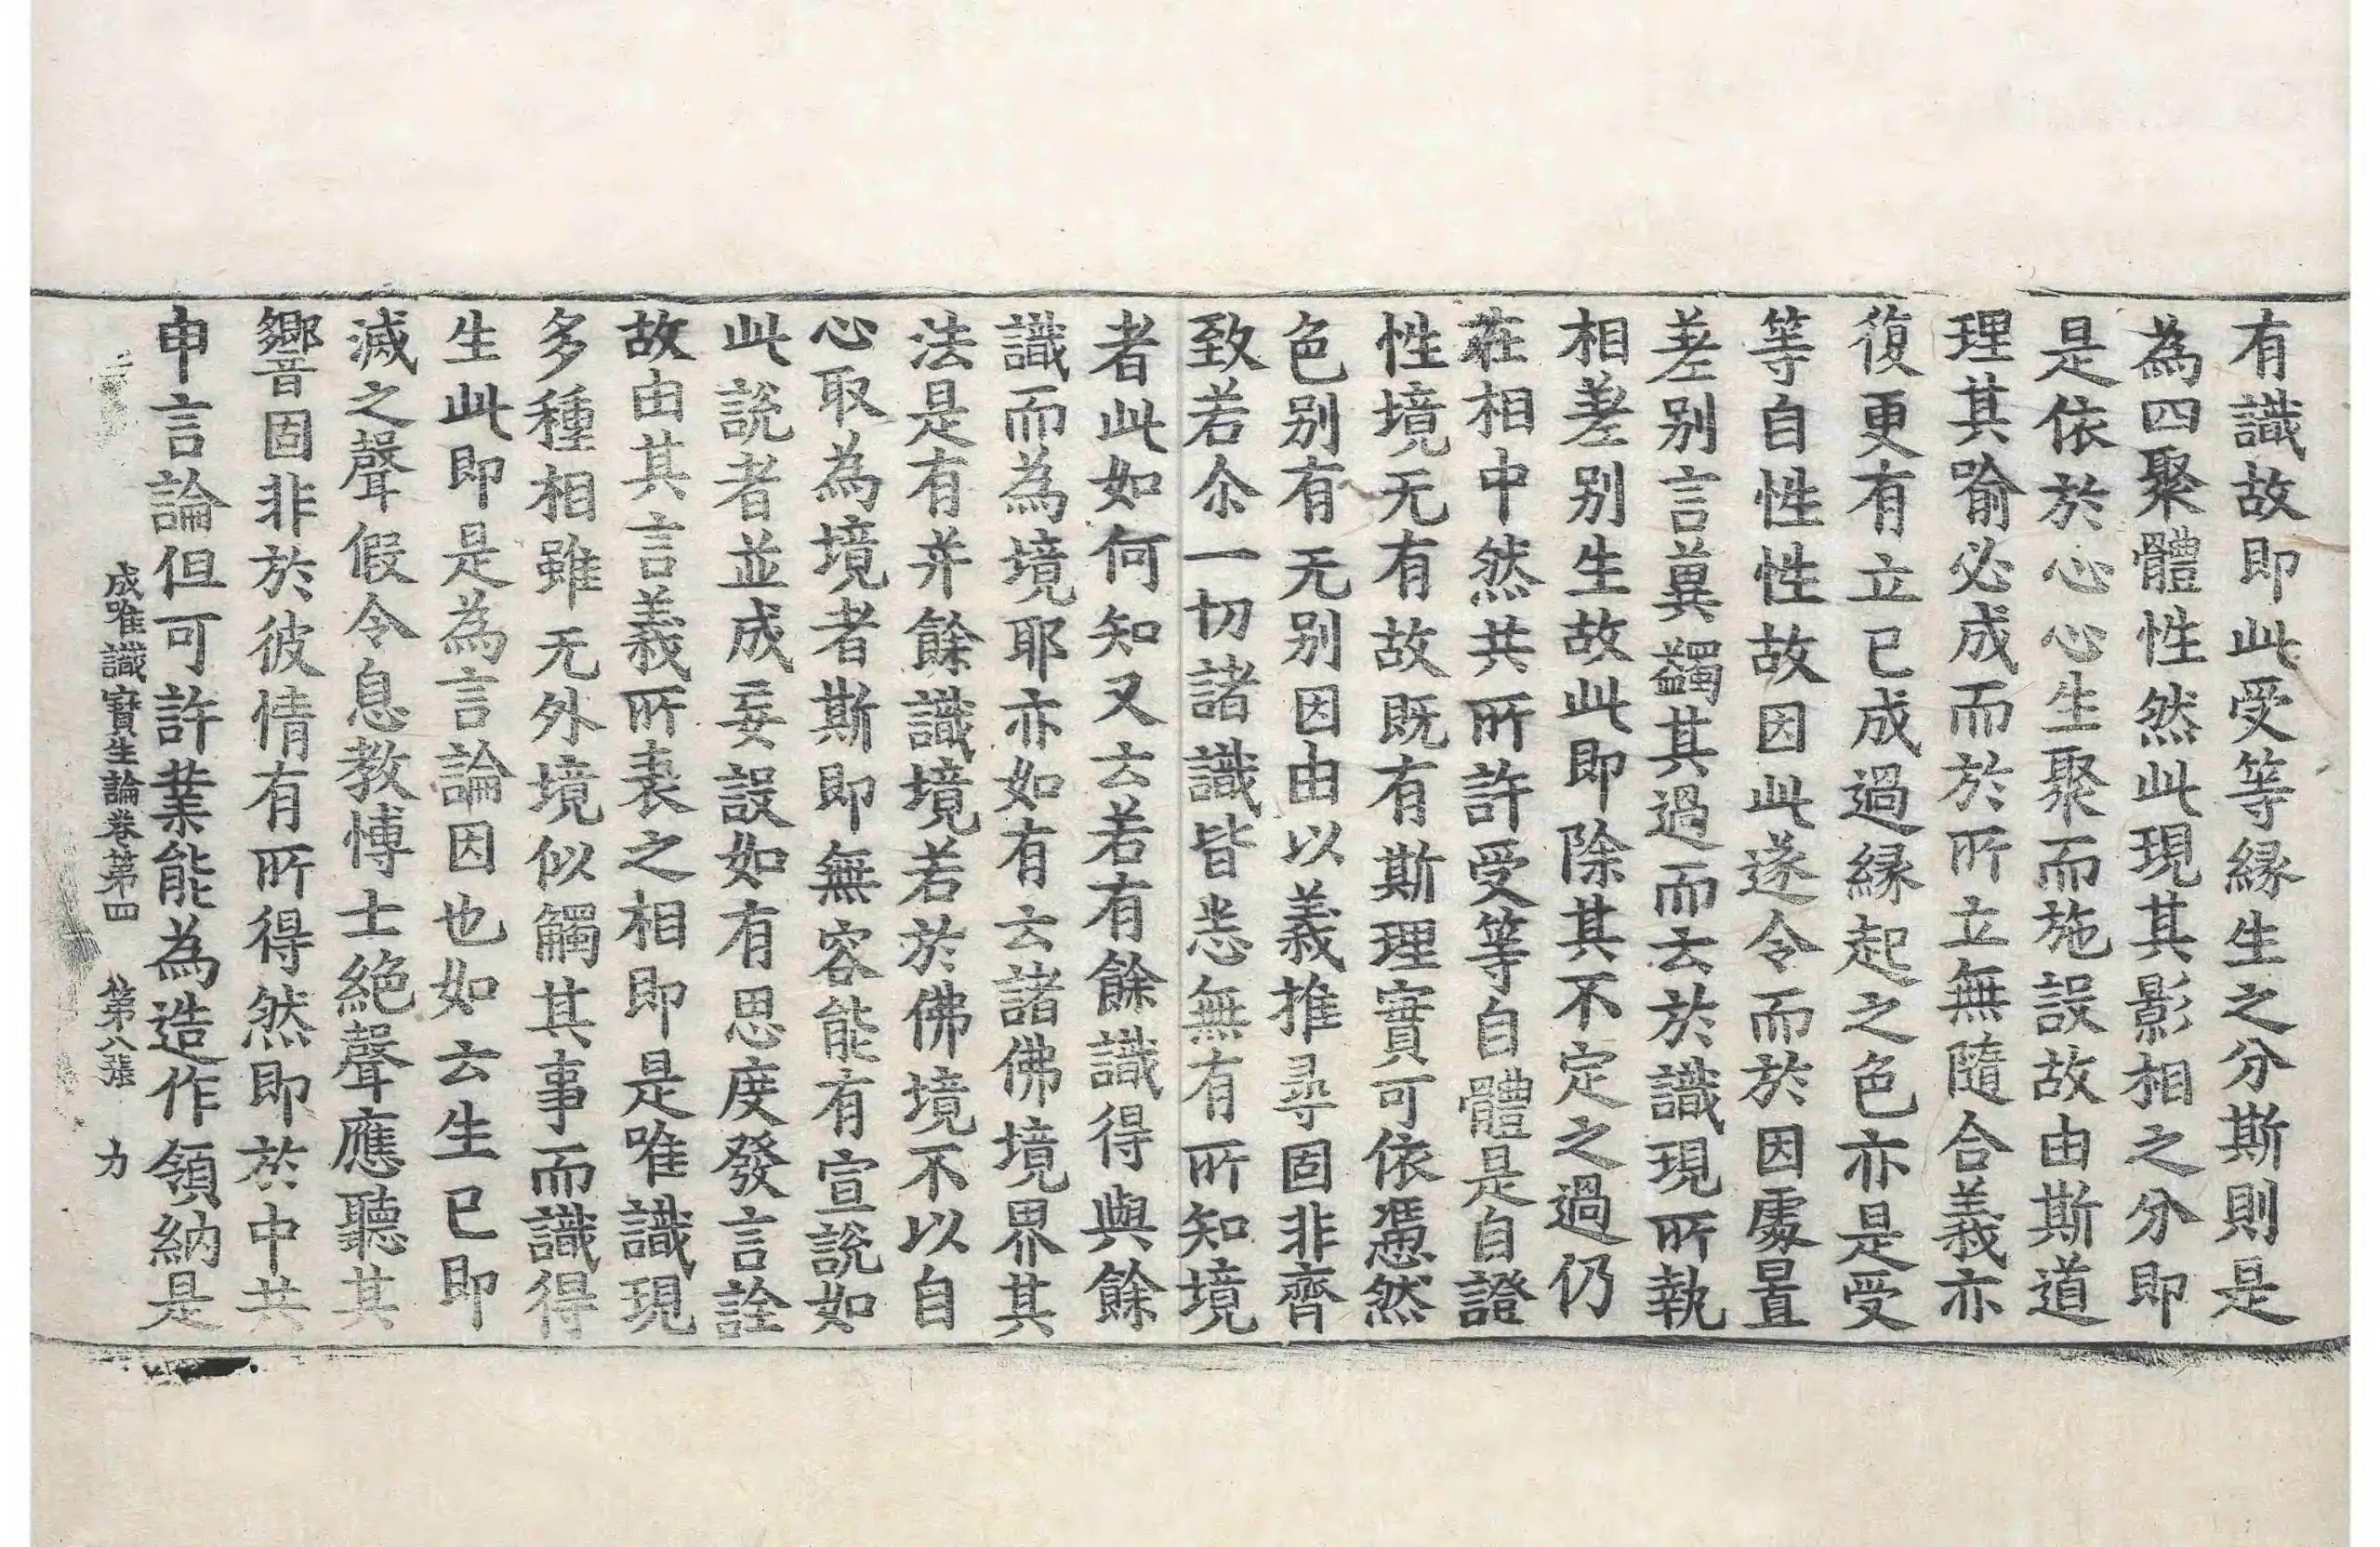 有識故即此受等縁生之分斯則是
為四聚體性然此現其影相之分即
是依於心心生聚而施設故由斯道
理其喻必成而於所立無隨合義亦
復更有立已成過縁起之色亦是受
等自性性故因此遂令而於因處置
差別言異蠲其過而云於識現所執
相差別生故此即除其不定之過仍
在相中然共所許受等自體是自證
性境无有故既有斯理實可依憑然
色別有无別因由以義推尋固非齊
致若尒一切諸識皆悉無有所知境
者此如何知又云若有餘識得與餘
識而為境耶亦如有云諸佛境界其
法是有并餘識境若於佛境不以自
心取為境者斯即無容能有宣說如
此說者並成妄設如有思度發言詮
故由其言義所表之相即是唯識現
多種相雖无外境似觸其事而識得
生此即是為言論因也如云生已即
滅之聲假令息教博士絶聲應聽其
響固非於彼情有所得然即於中共
申言論但可許業能為造作領納是
成唯識寶生論卷第四 第八張 力